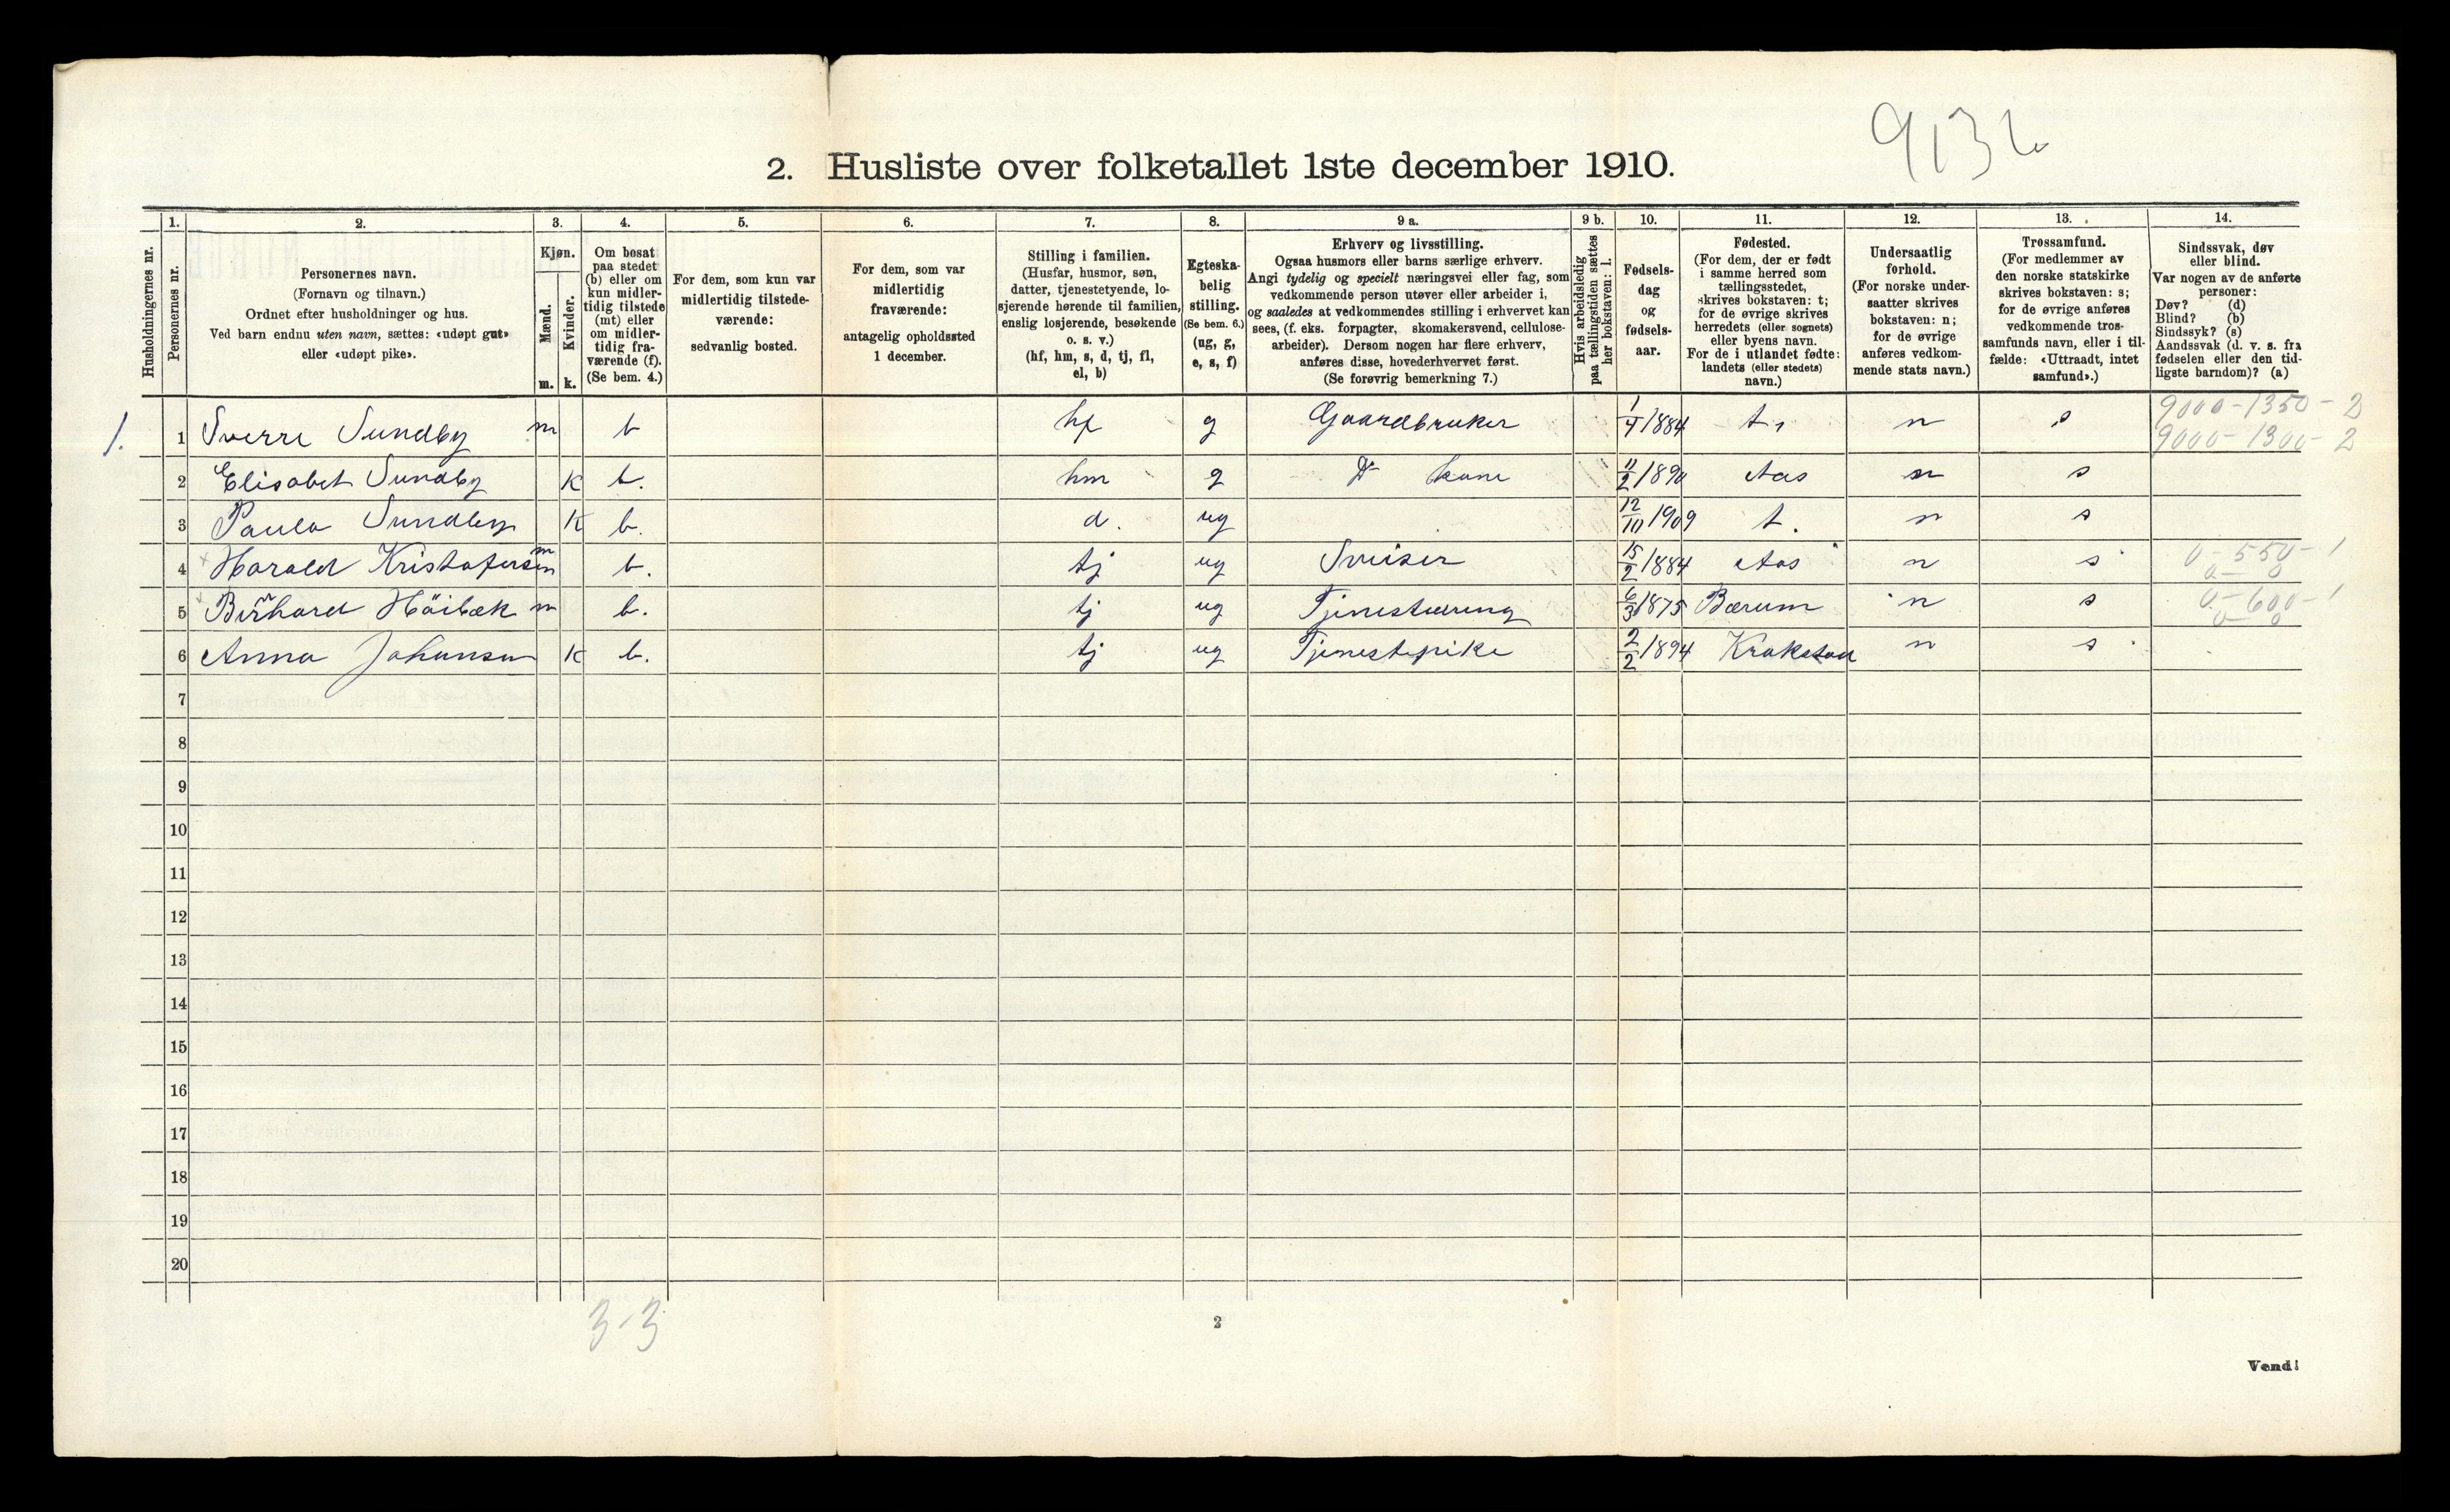 9136
2. Husliste over folketallet 1ste december 1910.
Husholdningernes nr.
1.
Personernes nr.
2.
Personernes navn.
(Fornavn og tilnavn.)
Ordnet efter husholdninger og hus.
Ved barn endnu uten navn, sættes: «udøpt gut»
eller «udøpt pike».
3.
Kjøn.
Mænd.
m.
Kvinder.
k.
4.
Om bosat
paa stedet
(b) eller om
kun midler-
tidig tilstede
(mt) eller
om midler-
tidig fra-
værende (f).
(Se bem. 4.)
5.
For dem, som kun var
midlertidig tilstede-
værende:
sedvanlig bosted.
6.
For dem, som var
midlertidig
fraværende:
antagelig opholdssted
1 december.
7.
Stilling i familien.
(Husfar, husmor, søn,
datter, tjenestetyende, lo-
sjerende hørende til familien,
enslig losjerende, besøkende
o. s. v.)
(hf, hm, s, d, tj, fl,
el, b)
8.
Egteska-
belig
stilling.
(Se bem. 6.)
(ug, g,
e, s, f)
9 a.
Erhverv og livsstilling.
Ogsaa husmors eller barns særlige erhverv.
Angi tydelig og specielt næringsvei eller fag, som
vedkommende person utøver eller arbeider i,
og saaledes at vedkommendes stilling i erhvervet kan
sees, (f. eks. forpagter, skomakersvend, cellulose-
arbeider). Dersom nogen har flere erhverv,
anføres disse, hovederhvervet først.
(Se forøvrig bemerkning 7.)
9 b.
Hvis arbeidsledig
paa tællingstiden sættes
her bokstaven: l.
10.
Fødsels-
dag
og
fødsels-
aar.
11.
Fødested.
(For dem, der er født
i samme herred som
tællingsstedet,
skrives bokstaven: t;
for de øvrige skrives
herredets (eller sognets)
eller byens navn.
For de i utlandet fødte:
landets (eller stedets)
navn.)
12.
Undersaatlig
forhold.
(For norske under-
saatter skrives
bokstaven: n;
for de øvrige
anføres vedkom-
mende stats navn.)
13.
Trossamfund.
(For medlemmer av
den norske statskirke
skrives bokstaven: s;
for de øvrige anføres
vedkommende tros-
samfunds navn, eller i til-
fælde: «Uttraadt, intet
samfund».)
14.
Sindssvak, døv
eller blind.
Var nogen av de anførte
personer:
Døv? (d)
Blind? (b)
Sindssyk? (s)
Aandssvak (d. v. s. fra
fødselen eller den tid-
ligste barndom)? (a)
1. 1 Sverre Sundby m b hf g Gaardbruker 1/4 1884 t. n s 9000-1350-2
9000-1300-2
2 Elisabet Sundby K b. hm g Do kone 11/2 1890 Aas n s
3 Paula Sundby K b. d. ug 12/10 1909 t. n s
4 Harald Kristofersen m b. tj ug Sveiser 15/2 1884 Aas n s 0-550-1
0-0
5 Bernhard Høibæk m b. tj ug Tjenestedreng 6/3 1875 Bærum n s 0-600-1
0-0
6 Anna Johansen K b. tj ug Tjenestepike 2/2 1894 Krakstad n s
7
8
9
10
11
12
13
14
15
16
17
18
19
20
3-3
2
Vend!